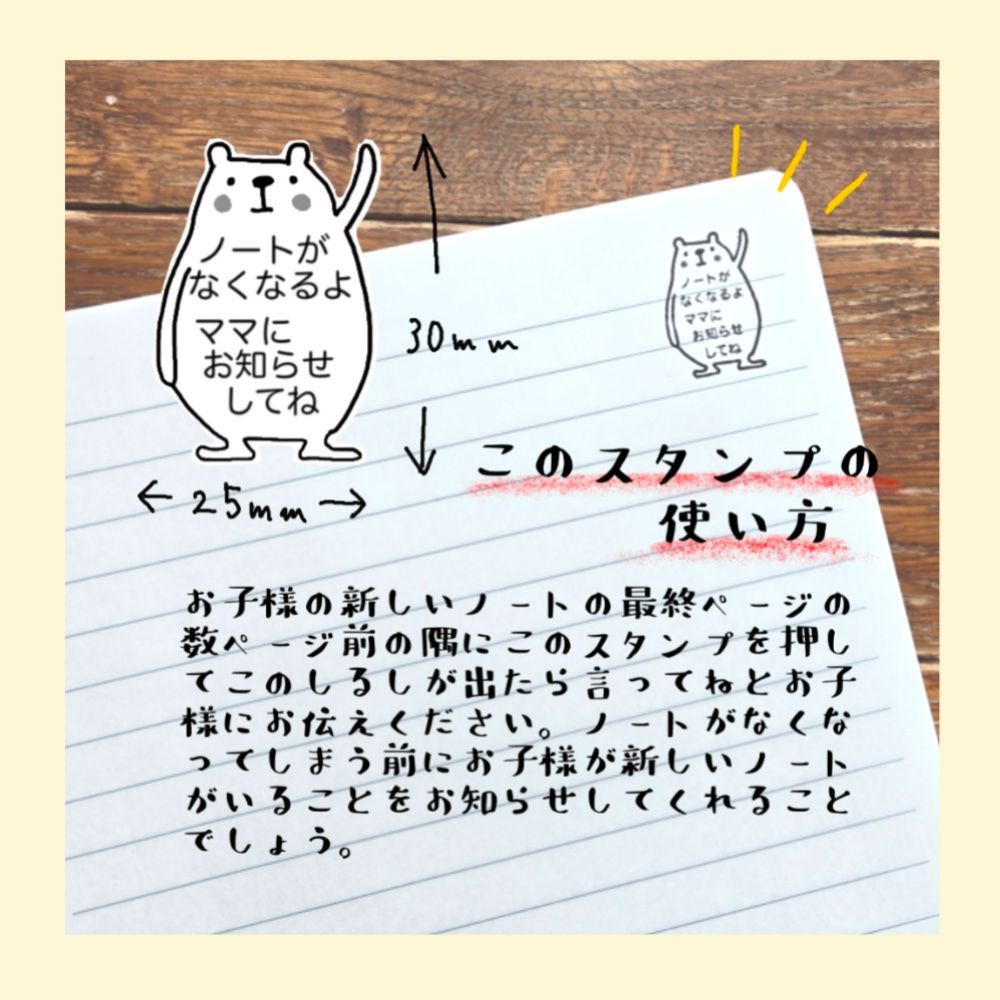 ノートが
なくなるよ
ママに
お知らせ
してね
30mm
25mm
ノートが
なくなるよ
ママに
お知らせ
してね
このスタンプの
使い方
お子様の新しいノートの最終ページの
数ページ前の隅にこのスタンプを押し
てこのしるしが出たら言ってねとお子
様にお伝えください。ノートがなくな
ってしまう前にお子様が新しいノート
がいることをお知らせしてくれること
でしょう。